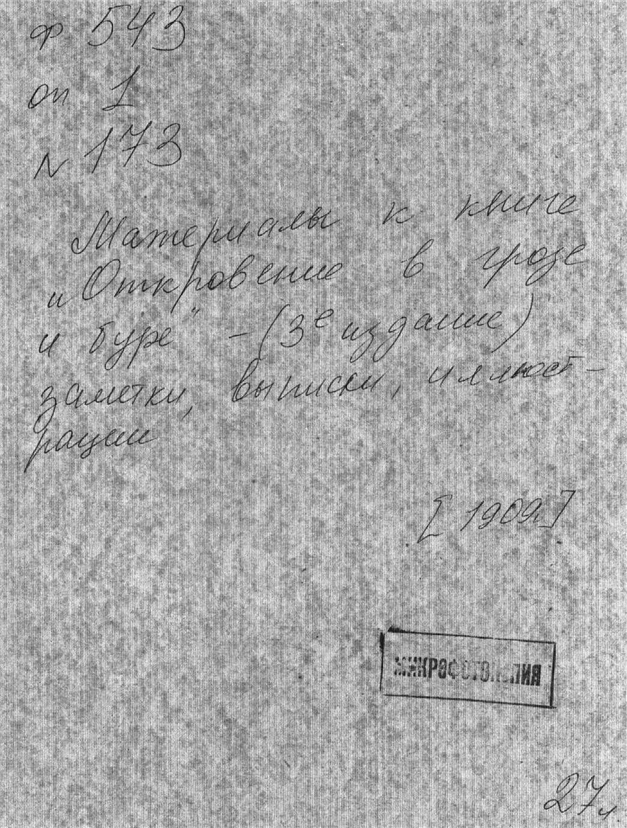 ф 543
оп 1
N 173
Материалы к книге
„Откровение в грозе
и буре" – (3е издание)
заметки, выписки, иллюст-
рации
[1909]
МИКРОФОТОКОПИЯ
27 л.